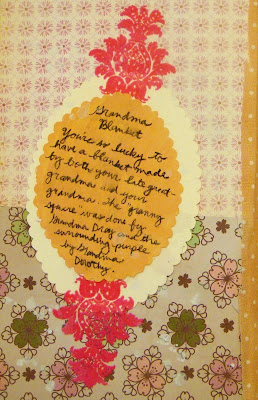 Grandma
Blanket
You're so lucky to
have a blanket made
by both your late great-
grandma and your
grandma. The granny
square was done by
Grandma Dray and the
surrounding purple
by Grandma
Dorothy.